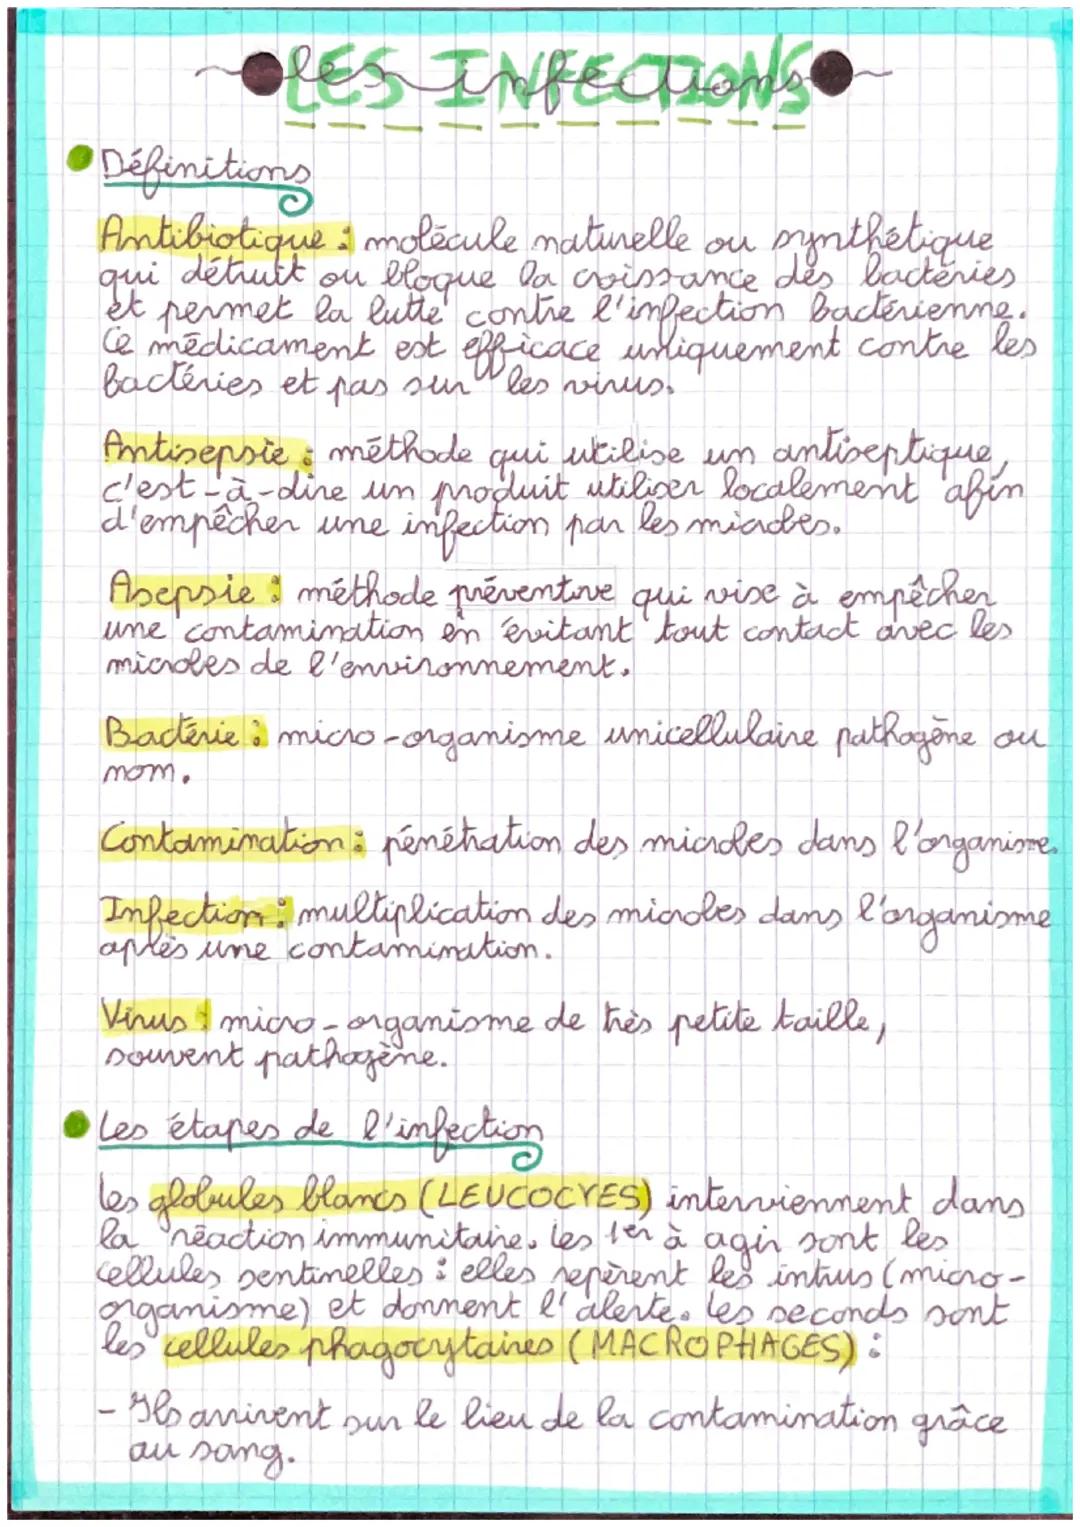 LES INFECTIONS
les infections
Définitions
Antibiotique : molécule naturelle ou synthétique
qui détruit ou bloque la croissance des bactéries
et permet la lutte contre l'infection bactérienne.
Ce médicament est efficace uniquement contre les
bactéries et pas sur les virus.
Antisepsie : méthode qui utilise un antiseptique,
c'est-à-dire un produit utiliser localement afin
d'empêcher une infection par les microbes.
Asepsie : méthode préventive qui vise à empêcher
une contamination en évitant tout contact avec les
microbes de l'environnement.
Bactérie : micro-organisme unicellulaire pathogène ou
nom.
Contamination : pénétration des microbes dans l'organisme.
Infection : multiplication des microbes dans l'organisme
après une contamination.
Virus : micro-organisme de très petite taille,
souvent pathogène.
Les étapes de l'infection
Les globules blancs (LEUCOCYES) interviennent dans
la réaction immunitaire. Les 1er à agir sont les
cellules sentinelles : elles repèrent les intrus (micro-
organisme) et donnent l'alerte. Les seconds sont
les cellules phagocytaires (MACROPHAGES) :
- Ils arrivent sur le lieu de la contamination grâce
au sang.